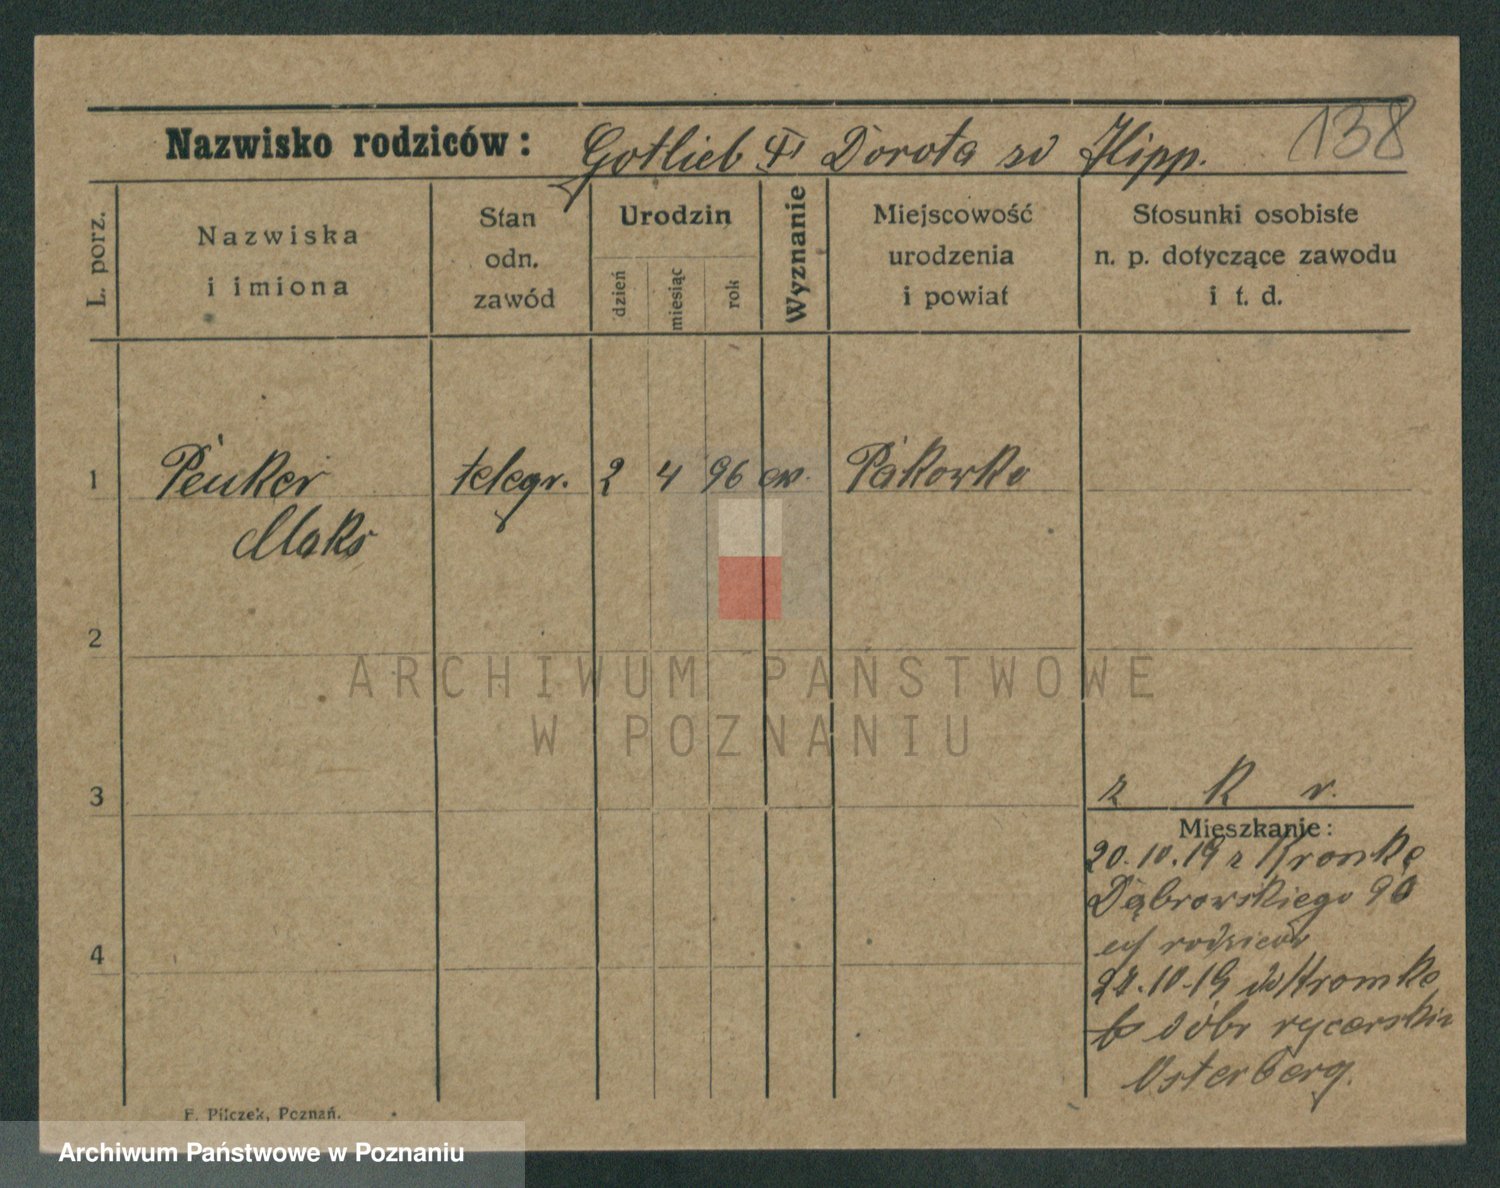 138
Nazwisko rodziców: Gotlieb i Dorota zd Hipp.
L. porz.
Nazwiska
i imiona
Stan
odn.
zawód
Urodzin
dzień
miesiąc
rok
Wyznanie
Miejscowość
urodzenia
i powiat
Stosunki osobiste
n. p. dotyczące zawodu
i t. d.
1 Peuker telegr. 2 4 96 ew. Pakowko
Maks
ARCHIWUM PAŃSTWOWE
W POZNANIU
2
3
z K r.
Mieszkanie:
20.10.19 z Kromke
Dąbrowskiego 90
rodziców
4
10.19 do Kromke
dóbr rycerskie
Osterberg.
F. Pilczek, Poznań.
Archiwum Państwowe w Poznaniu